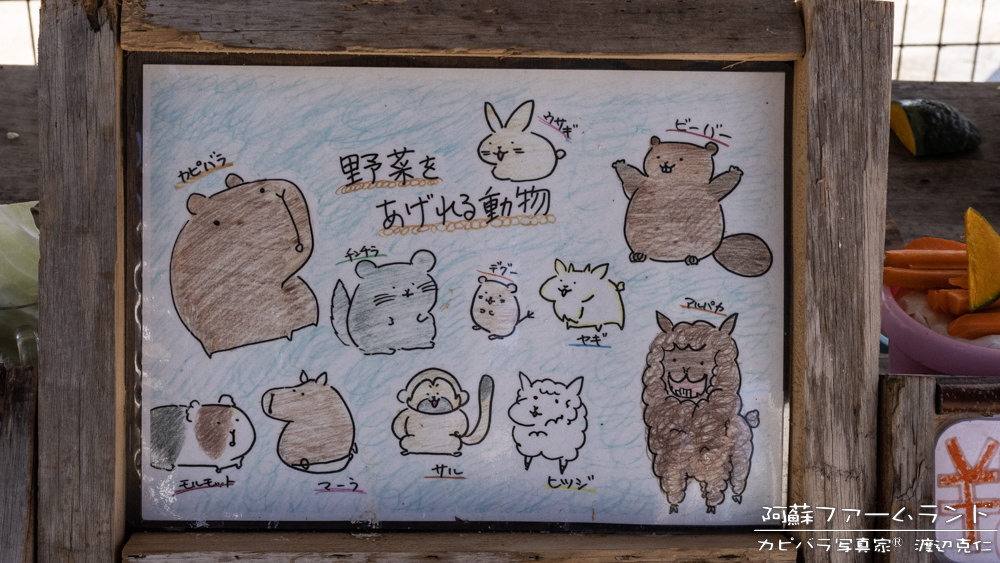 野菜を
あげれる動物
ウサギ
ビーバー
カピバラ
チンチラ
デグー
ヤギ
アルパカ
モルモット
マーラ
サル
ヒツジ
¥
阿蘇ファームランド
カピバラ写真家® 渡辺克仁